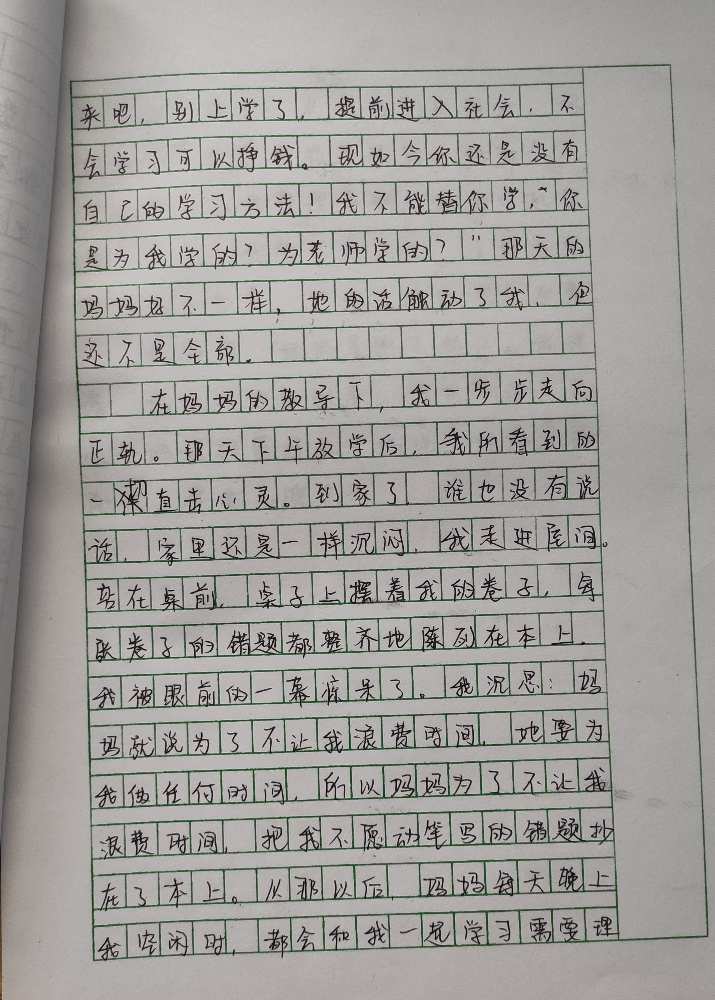 来吧，别上学了，提前进入社会，不
会学习可以挣钱。现如今你还是没有
自己的学习方法！我不能替你学，“你
是为我学的？为老师学的？”那天的
妈妈好不一样，她的话触动了我，但
还不是全部。
在妈妈的教导下，我一步步走向
正轨。那天下午放学后，我所看到的
一禊直击心灵。到家了，谁也没有说
话，家里还是一样沉闷，我走进屋间。
站在桌前，桌子上摆着我的卷子，每
张卷子的错题都整齐地陈列在本上，
我被眼前的一幕惊呆了。我沉思：妈
妈就说为了不让我浪费时间，她要为
我做任何时间，所以妈妈为了不让我
浪费时间，把我不愿动笔写的错题抄
在了本上。从那以后，妈妈每天晚上
我空闲时，都会和我一起学习需要理